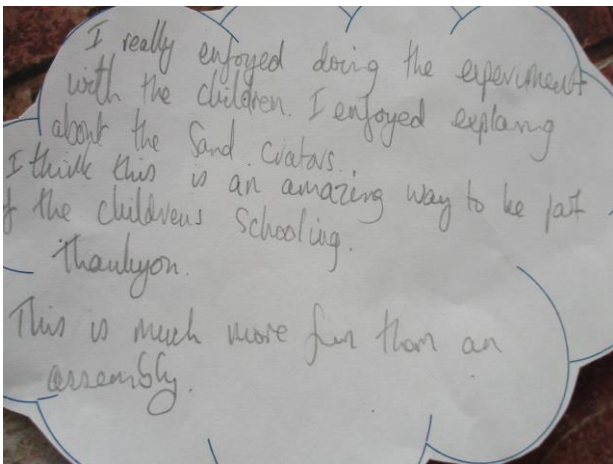 I really enjoyed doing the experiment
with the children. I enjoyed explaing
about the Sand Crators.
I think this is an amazing way to be part
f the childrens Schooling.
Thankyou.
This is much more fun than an
assembly.